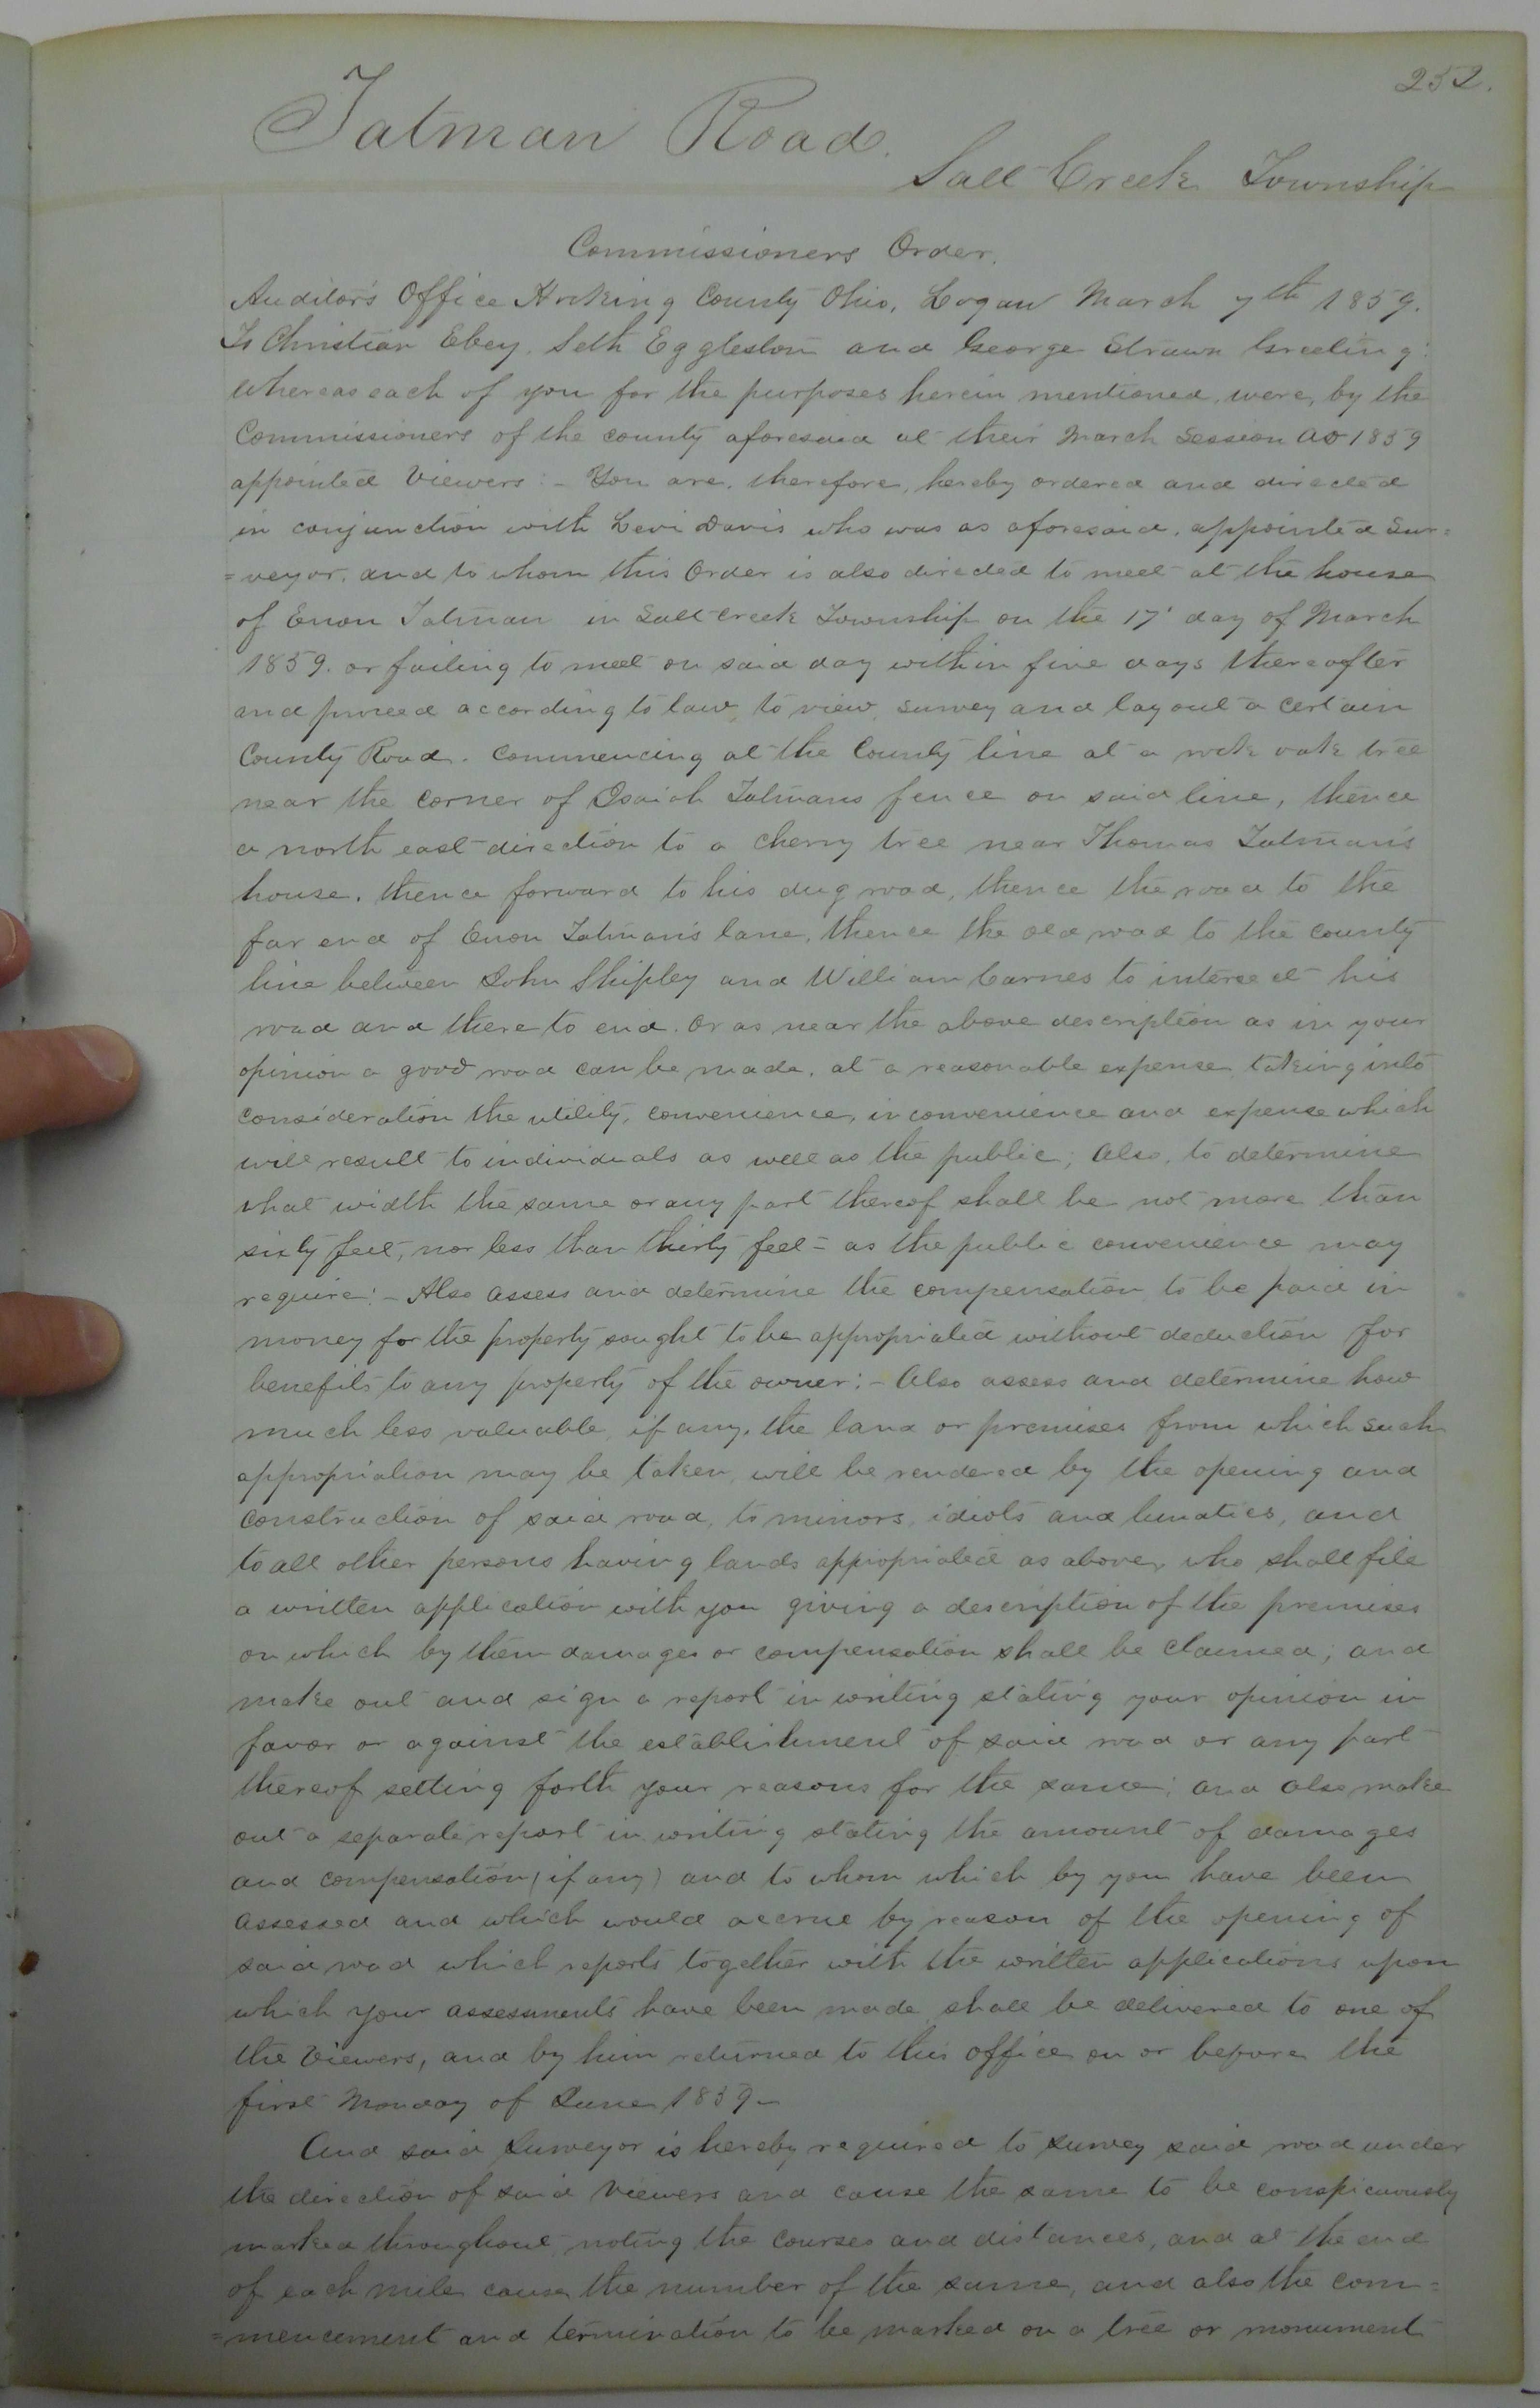 252.
Tatman Road.
Salt Creek Township
Commissioners Order.
Auditor's Office Hocking County Ohio, Logan March 7th 1859.
To Christian Ebey, Seth Eggleston and George Strawn Greeting:
Whereas each of you for the purposes herein mentioned, were, by the
Commissioners of the county aforesaid at their March Session AD 1859
appointed Viewers:- You are, therefore, hereby ordered and directed
in conjunction with Levi Davis who was as aforesaid, appointed Sur=
=veyor, and to whom this Order is also directed to meet at the house
of Enon Tatman in Salt Creek Township on the 17' day of March
1859. or failing to meet on said day within five days thereafter
and proceed according to law, to view, survey and lay out a certain
County Road. Commencing at the County line at a rock oak tree
near the corner of Isaiah Tatmans fence on said line, thence
a north east direction to a cherry tree near Thomas Tatman's
house, thence forward to his dug road, thence the road to the
far end of Enon Tatman's lane, thence the old road to the county
line between John Shipley and William Carnes to intersect his
road and there to end. Or as near the above description as in your
opinion a good road can be made, at a reasonable expense, taking into
consideration the utility, convenience, inconvenience and expense which
will result to individuals as well as the public; Also, to determine
what width the same or any part thereof shall be not more than
sixty feet, nor less than thirty feet - as the public convenience may
require:- Also assess and determine the compensation to be paid in
money for the property sought to be appropriated without deduction for
benefits to any property of the owner:- Also assess and determine how
much less valuable, if any, the land or premises from which such
appropriation may be taken, will be rendered by the opening and
construction of said road, to minors, idiots and lunatics, and
to all other persons having lands appropriated as above, who shall file
a written application with you giving a description of the premises
on which by them damages or compensation shall be claimed; and
make out and sign a report in writing stating your opinion in
favor or against the establishment of said road or any part
thereof setting forth your reasons for the same; and also make
out a separate report in writing stating the amount of damages
and compensation (if any) and to whom which by you have been
assessed and which would accrue by reason of the opening of
said road which reports together with the written applications upon
which your assessments have been made shall be delivered to one of
the Viewers, and by him returned to this office on or before the
first Monday of June 1859-
And said Surveyor is hereby required to survey said road under
the direction of said Viewers and cause the same to be conspicuously
marked throughout, noting the courses and distances, and at the end
of each mile cause the number of the same, and also the com=
=mencement and termination to be marked on a tree or monument